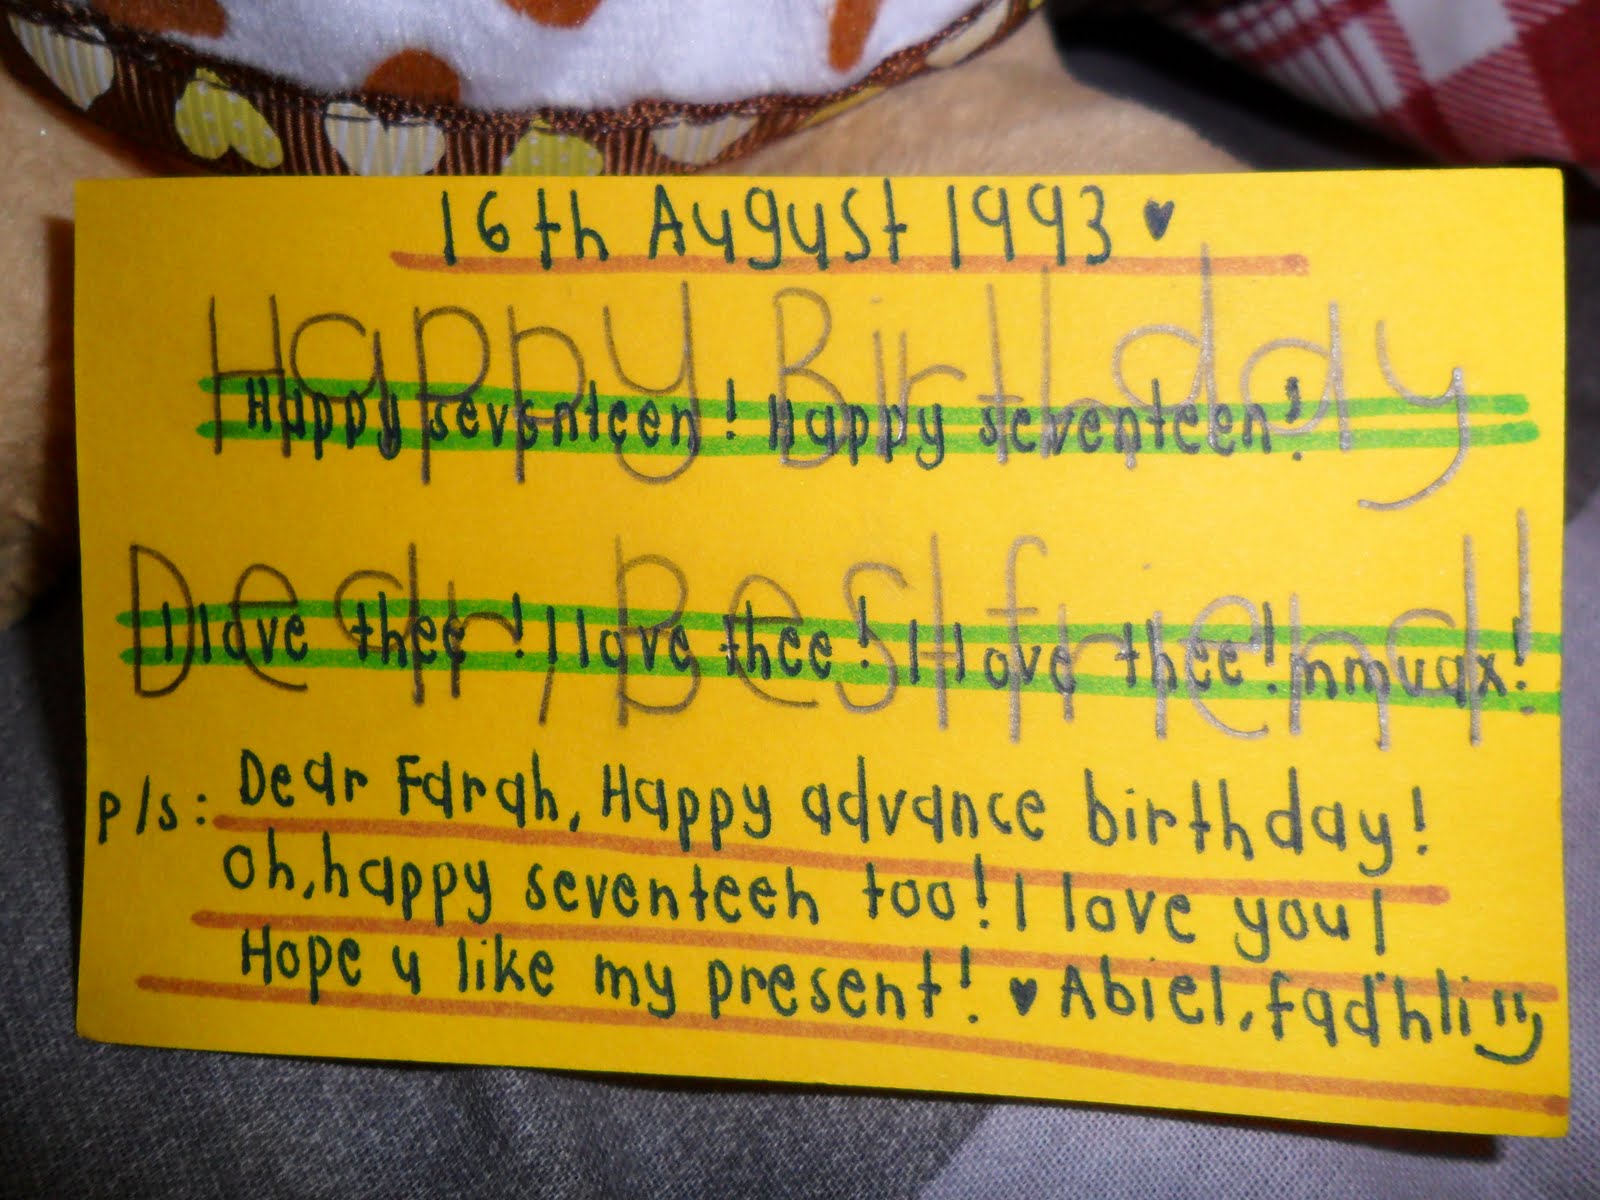 16th August 1993 ♥
Happy Birthday
Happy seventeen! Happy seventeen!
Dear, Bestfriend!
I love thee! I love thee! I love thee! mmuax!
p/s: Dear Farah, Happy advance birthday!
Oh, happy seventeen too! I love you!
Hope u like my present! ♥ Abiel, fadhli =)